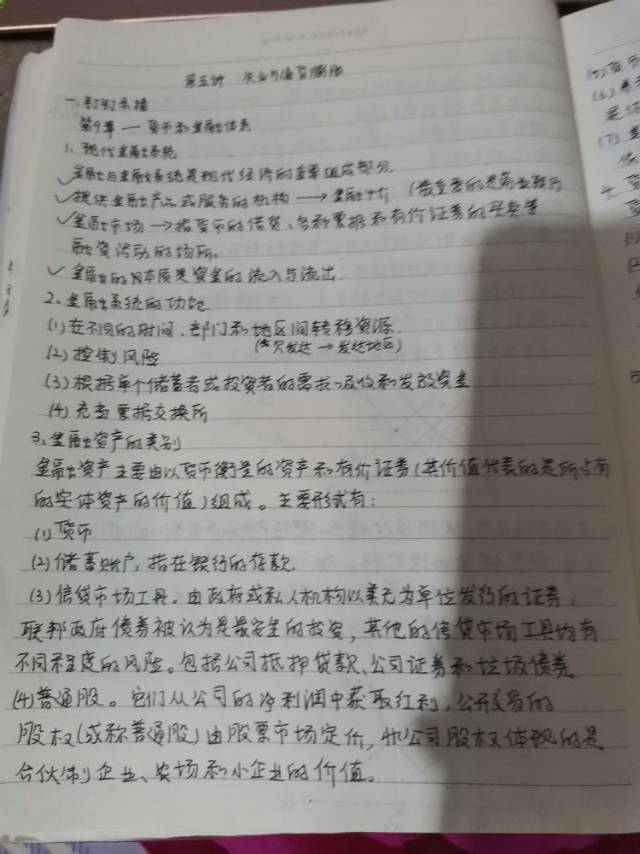 第五讲 失业与通货膨胀
一、钉钉录播
第9章 — 货币和金融体系
1、现代金融系统
✓金融与金融系统是现代经济的重要组成部分
✓提供金融产品或服务的机构 → 金融中介 (最重要的是商业银行
✓金融市场 → 指货币的借贷、各种票据和有价证券的买卖等
融资活动的场所。
✓金融的本质是资金的流入与流出
2、金融系统的功能
(1)在不同的时间、部门和地区间转移资源
(欠发达 → 发达地区)
(2)控制风险
(3)根据单个储蓄者或投资者的需求吸收和发放资金
(4)充当票据交换所
3、金融资产的类别
金融资产主要由以货币衡量的资产和有价证券(其价值代表的是所占有
的实体资产的价值)组成。主要形式有:
(1)货币
(2)储蓄账户,指在银行的存款
(3)信贷市场工具。由政府或私人机构以美元为单位发行的证券,
联邦政府债券被认为是最安全的投资,其他的信贷市场工具均有
不同程度的风险。包括公司抵押贷款、公司证券和垃圾债券
(4)普通股。它们从公司的净利润中获取红利,公开交易的
股权(或称普通股)由股票市场定价,非公司股权体现的是
合伙制企业、农场和小企业的价值。
(5)货币
(6)
(7)
4、货
(1)
(2)
5